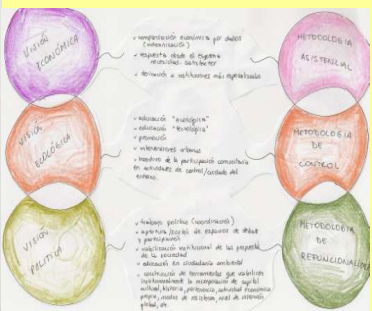 VISIÓN
ECONÓMICA
✓ compensación económica por daños
(indemnización)
✓ respuesta desde el esquema
necesidad-satisfactor
✓ derivación a instituciones más especializadas
METODOLOGIA
ASISTENCIAL
VISIÓN
ECOLÓGICA
✓ educación "ecológica"
✓ educación "tecnológica"
✓ promoción
✓ intervenciones urbanas
✓ incentivo de la participación comunitaria
en actividades de control/cuidado del
entorno.
METODOLOGIA
DE
CONTROL
VISIÓN
POLITICA
✓ trabajo político (coordinación)
✓ apertura/acción de espacios de debate
y participación
✓ viabilización institucional de las propuestas
de la sociedad
✓ educación en ciudadanía ambiental
✓ construcción de herramientas que viabilicen
institucionalmente la incorporación de capital
cultural, historia, pertenencia, actividad económica
propia, modos de resistencia, nivel de inserción
global, etc.
METODOLOGIA
DE
REFUNCIONALIZ